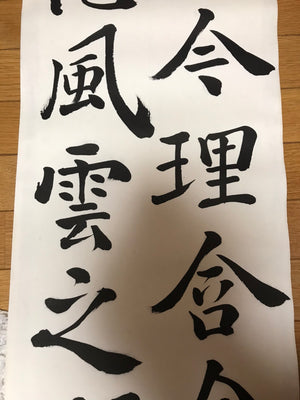 令理含
風雲之